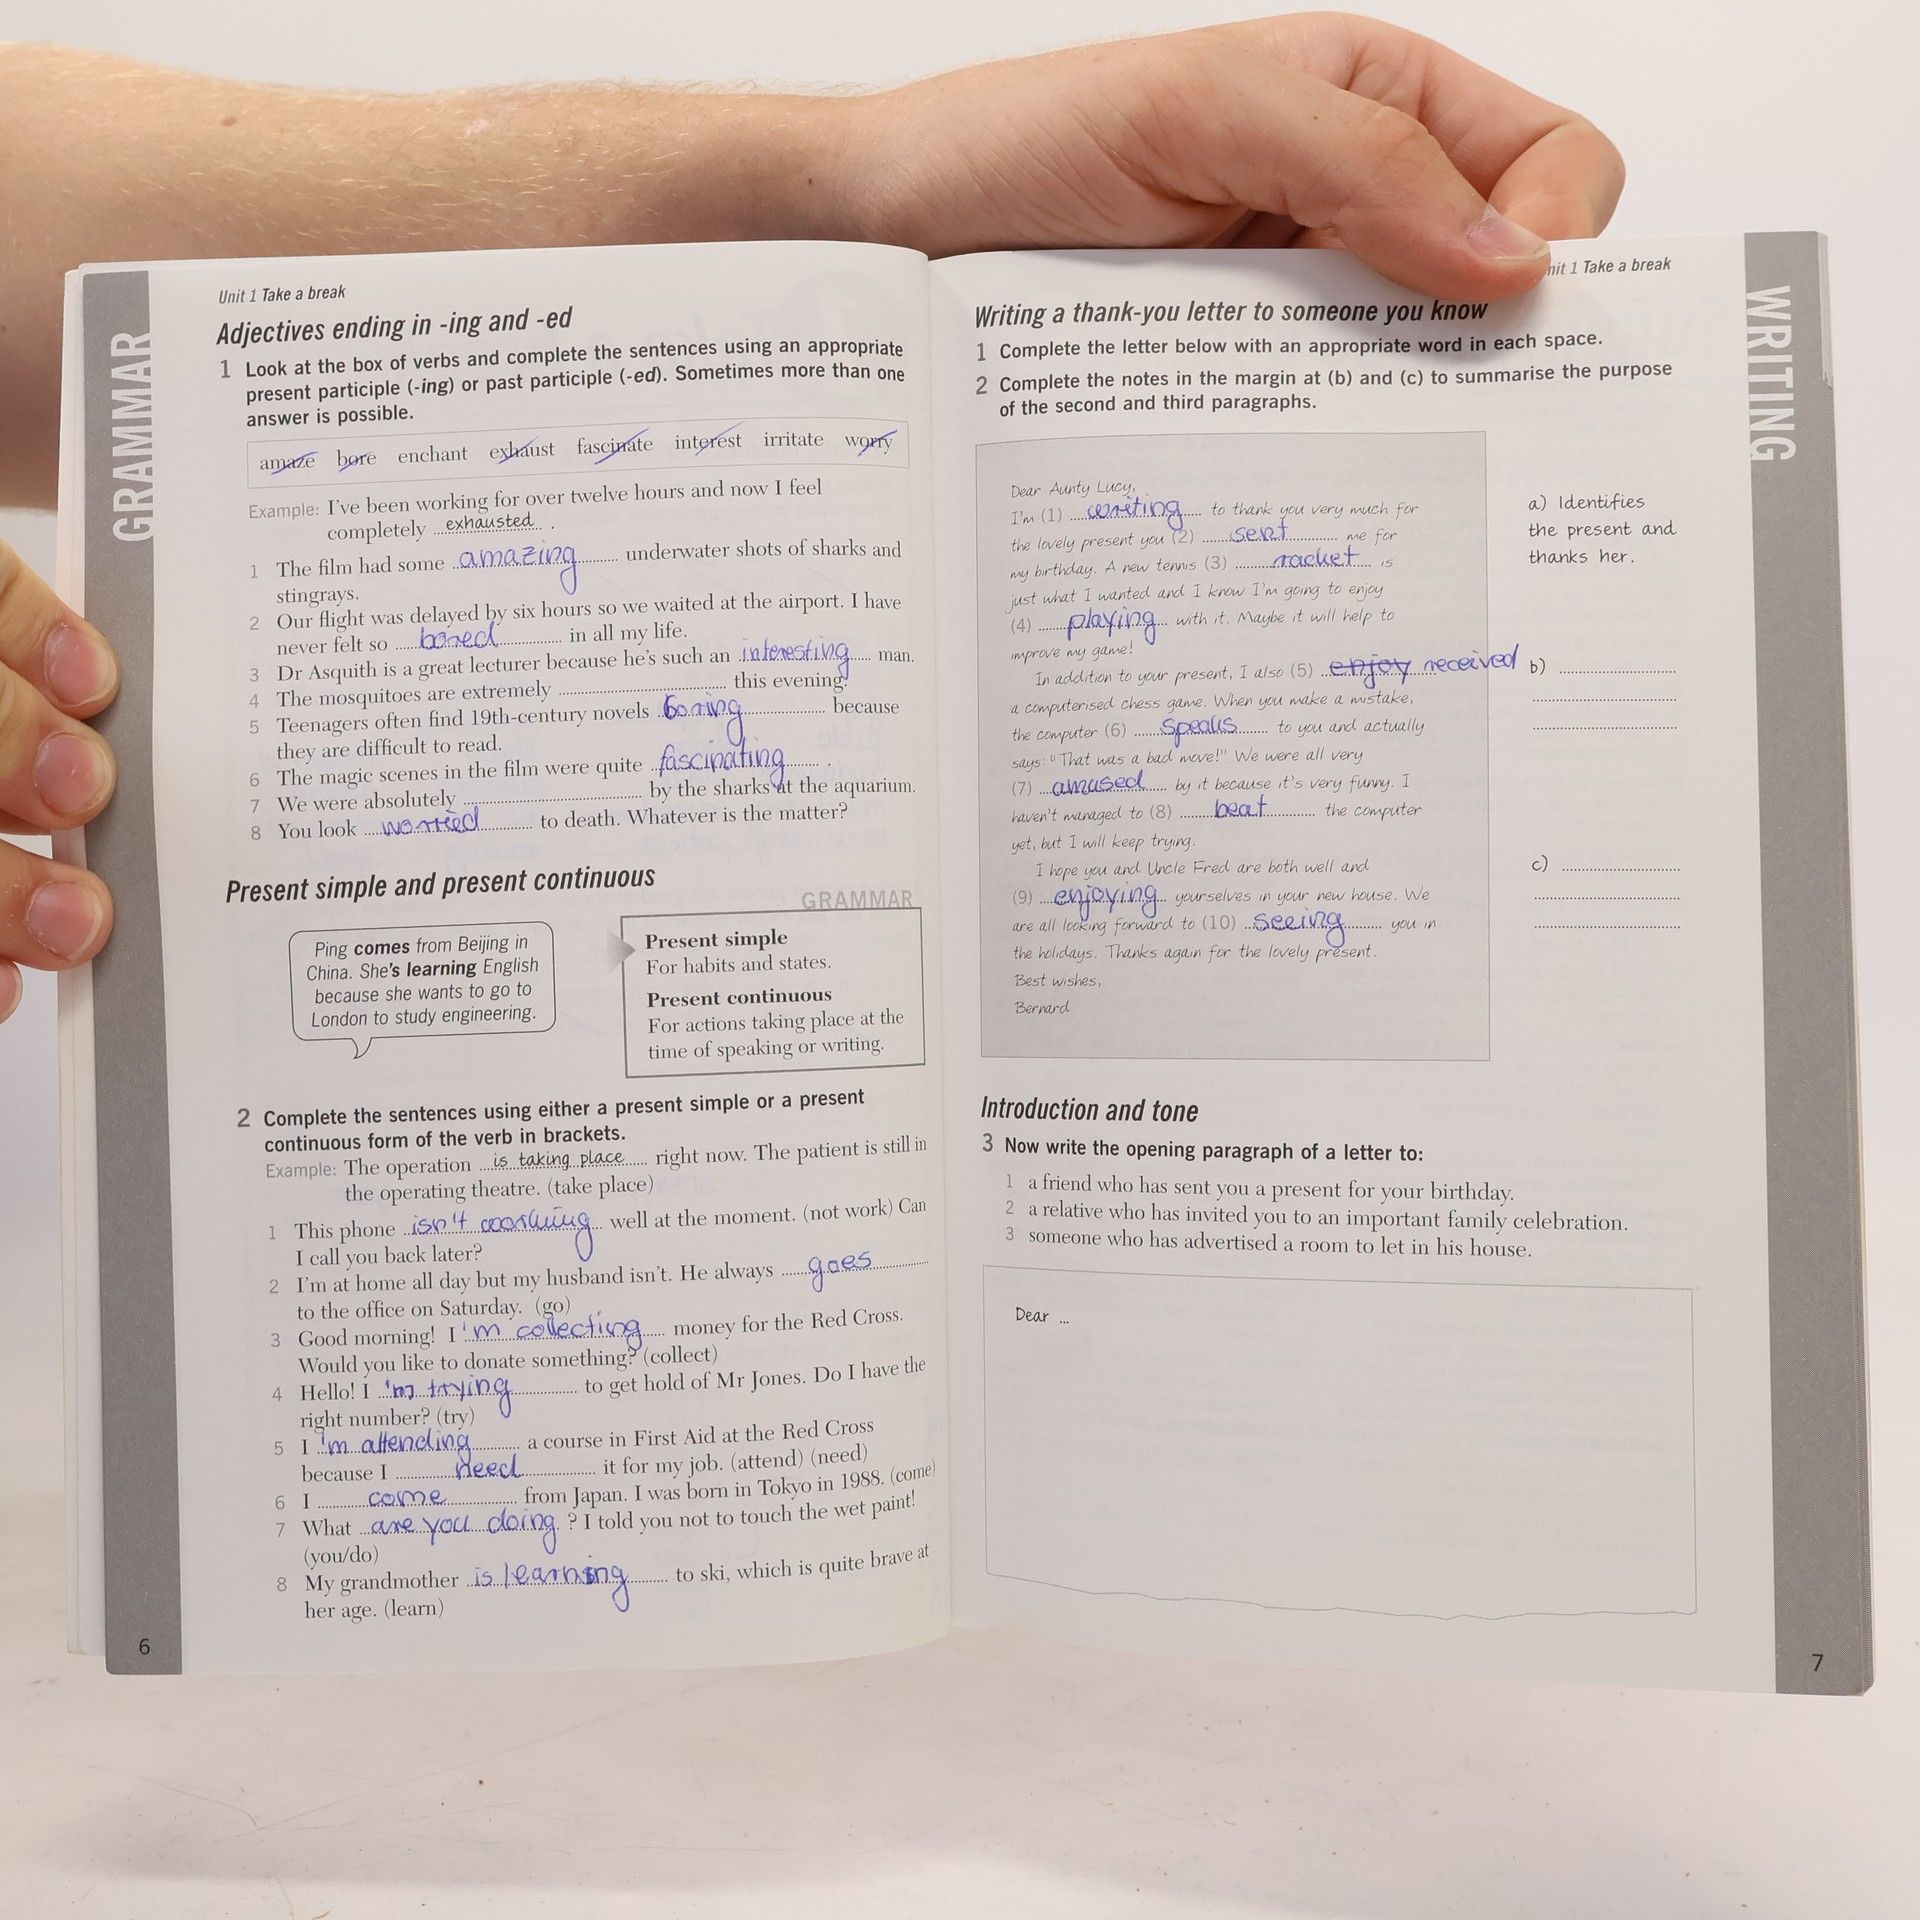 GRAMMAR
Unit 1 Take a break
Adjectives ending in -ing and -ed
1 Look at the box of verbs and complete the sentences using an appropriate
present participle (-ing) or past participle (-ed). Sometimes more than one
answer is possible.
amaze bore enchant exhaust fascinate interest irritate worry
Example: I've been working for over twelve hours and now I feel
completely exhausted .
1 The film had some amazing underwater shots of sharks and
stingrays.
2 Our flight was delayed by six hours so we waited at the airport. I have
never felt so bored in all my life.
3 Dr Asquith is a great lecturer because he's such an interesting man.
4 The mosquitoes are extremely ........ this evening.
5 Teenagers often find 19th-century novels boring because
they are difficult to read.
6 The magic scenes in the film were quite fascinating .
7 We were absolutely ........ by the sharks at the aquarium.
8 You look worried to death. Whatever is the matter?
Present simple and present continuous
GRAMMAR
Ping comes from Beijing in
China. She's learning English
because she wants to go to
London to study engineering.
Present simple
For habits and states.
Present continuous
For actions taking place at the
time of speaking or writing.
2 Complete the sentences using either a present simple or a present
continuous form of the verb in brackets.
Example: The operation is taking place right now. The patient is still in
the operating theatre. (take place)
1 This phone isn't working well at the moment. (not work) Can
I call you back later?
2 I'm at home all day but my husband isn't. He always goes
to the office on Saturday. (go)
3 Good morning! I 'm collecting money for the Red Cross.
Would you like to donate something? (collect)
4 Hello! I 'm trying to get hold of Mr Jones. Do I have the
right number? (try)
5 I 'm attending a course in First Aid at the Red Cross
because I need it for my job. (attend) (need)
6 I come from Japan. I was born in Tokyo in 1988. (come)
7 What are you doing ? I told you not to touch the wet paint!
(you/do)
8 My grandmother is learning to ski, which is quite brave at
her age. (learn)
6
WRITING
nit 1 Take a break
Writing a thank-you letter to someone you know
1 Complete the letter below with an appropriate word in each space.
2 Complete the notes in the margin at (b) and (c) to summarise the purpose
of the second and third paragraphs.
Dear Aunty Lucy,
I'm (1) writing to thank you very much for
the lovely present you (2) sent me for
my birthday. A new tennis (3) racket is
just what I wanted and I know I'm going to enjoy
(4) playing with it. Maybe it will help to
improve my game!
In addition to your present, I also (5) enjoy received
a computerised chess game. When you make a mistake,
the computer (6) speaks to you and actually
says: "That was a bad move!" We were all very
(7) amused by it because it's very funny. I
haven't managed to (8) beat the computer
yet, but I will keep trying.
I hope you and Uncle Fred are both well and
(9) enjoying yourselves in your new house. We
are all looking forward to (10) seeing you in
the holidays. Thanks again for the lovely present.
Best wishes,
Bernard
a) Identifies
the present and
thanks her.
b)
c)
Introduction and tone
3 Now write the opening paragraph of a letter to:
1 a friend who has sent you a present for your birthday.
2 a relative who has invited you to an important family celebration.
3 someone who has advertised a room to let in his house.
Dear ...
7